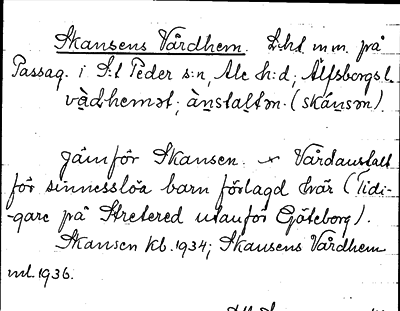 Skansens Vårdhem. Lht m.m. på
Passag. i S:t Peder s:n, Ale h:d, Älfsborgs l.
vàḍhemət; àṇstaltən. (skánsən).
Jämför Skansen. × Vårdanstalt
för sinnesslöa barn förlagd här (Tidi-
-gare på Stretered utanför Göteborg).
Skansen kb. 1934; Skansens Vårdhem
ml. 1936.